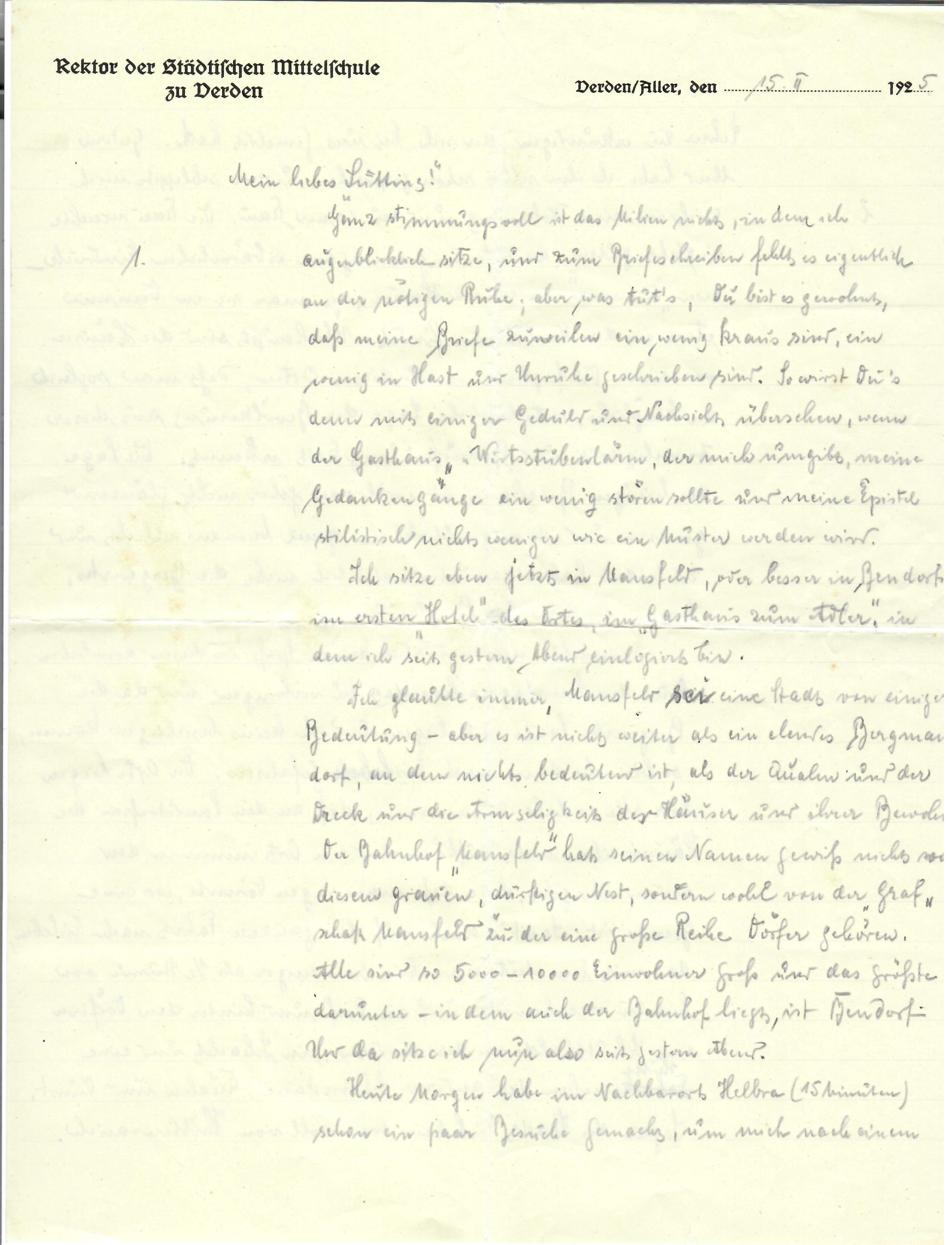 Rektor der Städtischen Mittelschule
zu Verden
Verden/Aller, den 15. II 1925
Mein liebes
Ganz stimmungsvoll ist das Milieu nicht, in dem ich
1.
augenblicklich sitze, und zum Briefeschreiben fehlt es eigentlich
an der nötigen Ruhe; aber was tut's, Du bist es gewohnt,
daß meine Briefe zuweilen ein wenig kraus sind, ein
wenig in Hast und Unruhe geschrieben sind. So wirst Du's
denn mit einiger Geduld und Nachsicht übersehen, wenn
der Gasthaus- u. Wirtsstubenlärm, der mich umgibt, meine
Gedankengänge ein wenig stören sollte und meine Epistel
stilistisch nichts weniger wie ein Muster werden wird.
Ich sitze eben jetzt in Mansfeld, oder besser in Bendorf
im ersten "Hotel" des Ortes, im "Gasthaus zum Adler", in
dem ich seit gestern Abend einlogiert bin.
Ich glaubte immer, Mansfeld sei eine Stadt von einiger
Bedeutung – aber es ist nichts weiter als ein elendes Bergman
dorf, an dem nichts bedeutend ist, als der Qualm und der
Dreck und die Armseligkeit der Häuser und ihrer Bewohn
Der Bahnhof "Mansfeld" hat seinen Namen gewiß nicht von
diesem grauen, dürftigen Nest, sondern wohl von der "Graf-
schaft Mansfeld" zu der eine große Reihe Dörfer gehören.
Alle sind so 5000–10000 Einwohner groß und das größte
darunter – in dem auch der Bahnhof liegt, ist Bendorf –
Und da sitze ich nun also seit gestern Abend.
Heute Morgen habe im Nachbarort Helbra (15 Minuten)
schon ein paar Besuche gemacht, um mich nach einem